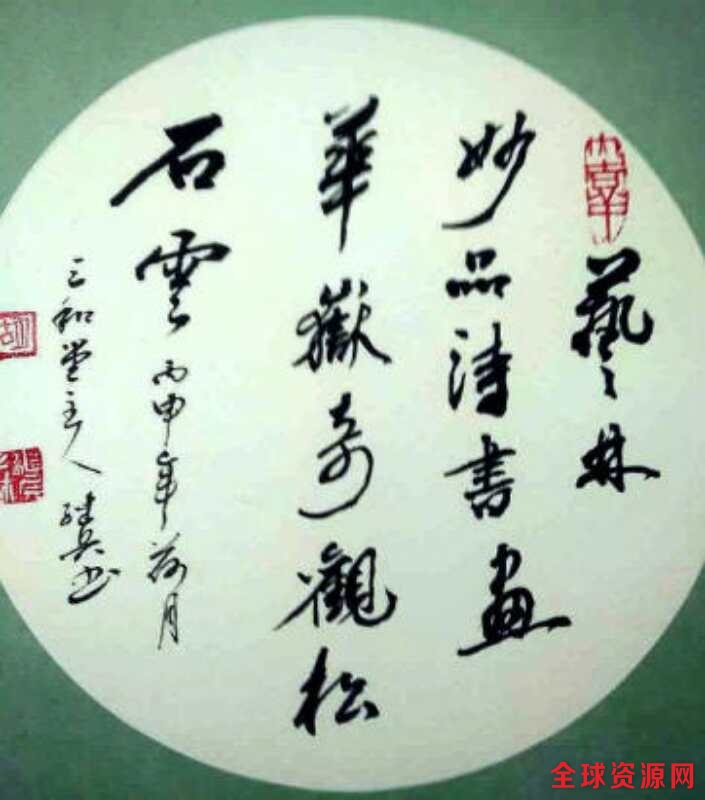 藝林
妙品詩書畫
華嶽奇觀松
石雲
丙申年荷月
三和堂主人
全球资源网